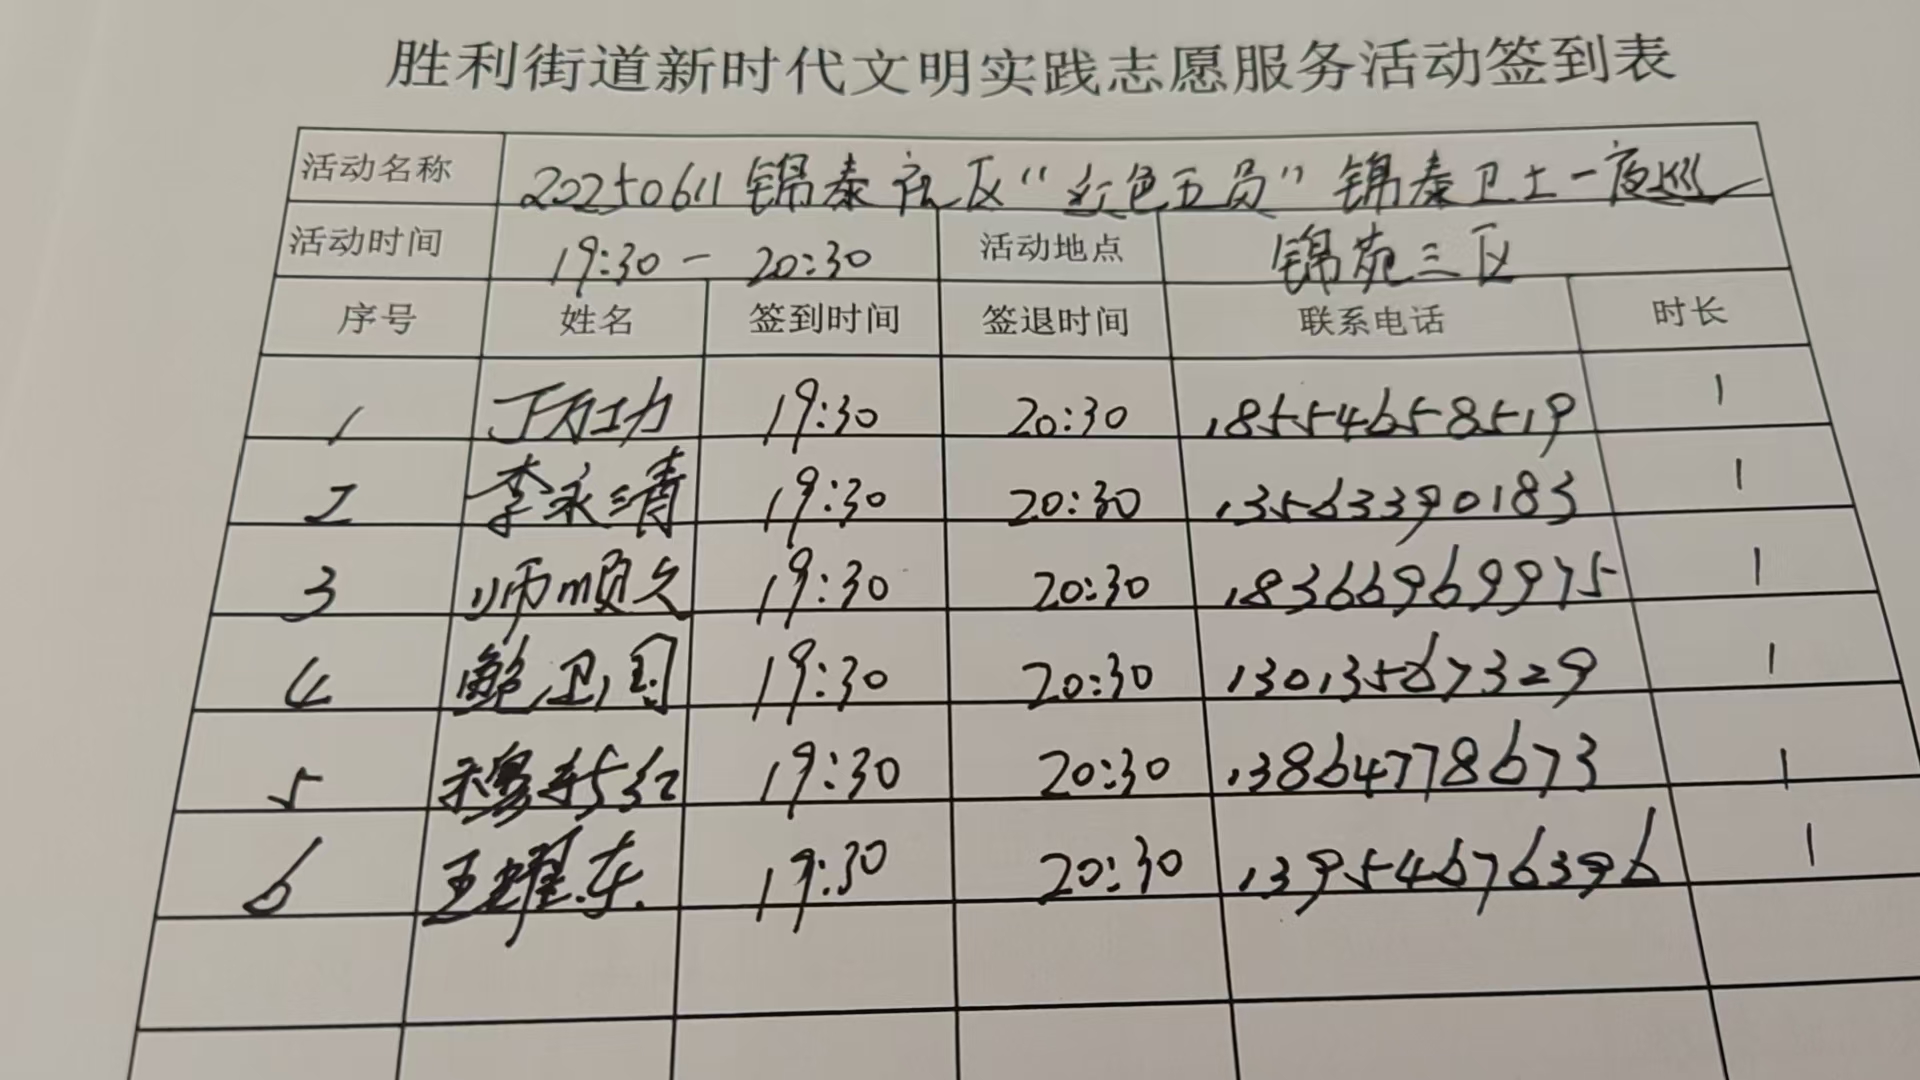 胜利街道新时代文明实践志愿服务活动签到表
活动名称 20250611锦泰社区“红色五员”锦泰卫士一夜巡
活动时间 19:30－20:30 活动地点 锦苑三区
序号 姓名 签到时间 签退时间 联系电话 时长
1 丁万功 19:30 20:30 18554658519 1
2 李永清 19:30 20:30 13563390183 1
3 师顺久 19:30 20:30 18366969975 1
4 鲍卫国 19:30 20:30 13013567329 1
5 19:30 20:30 13864778673 1
6 王耀东 19:30 20:30 13954676396 1